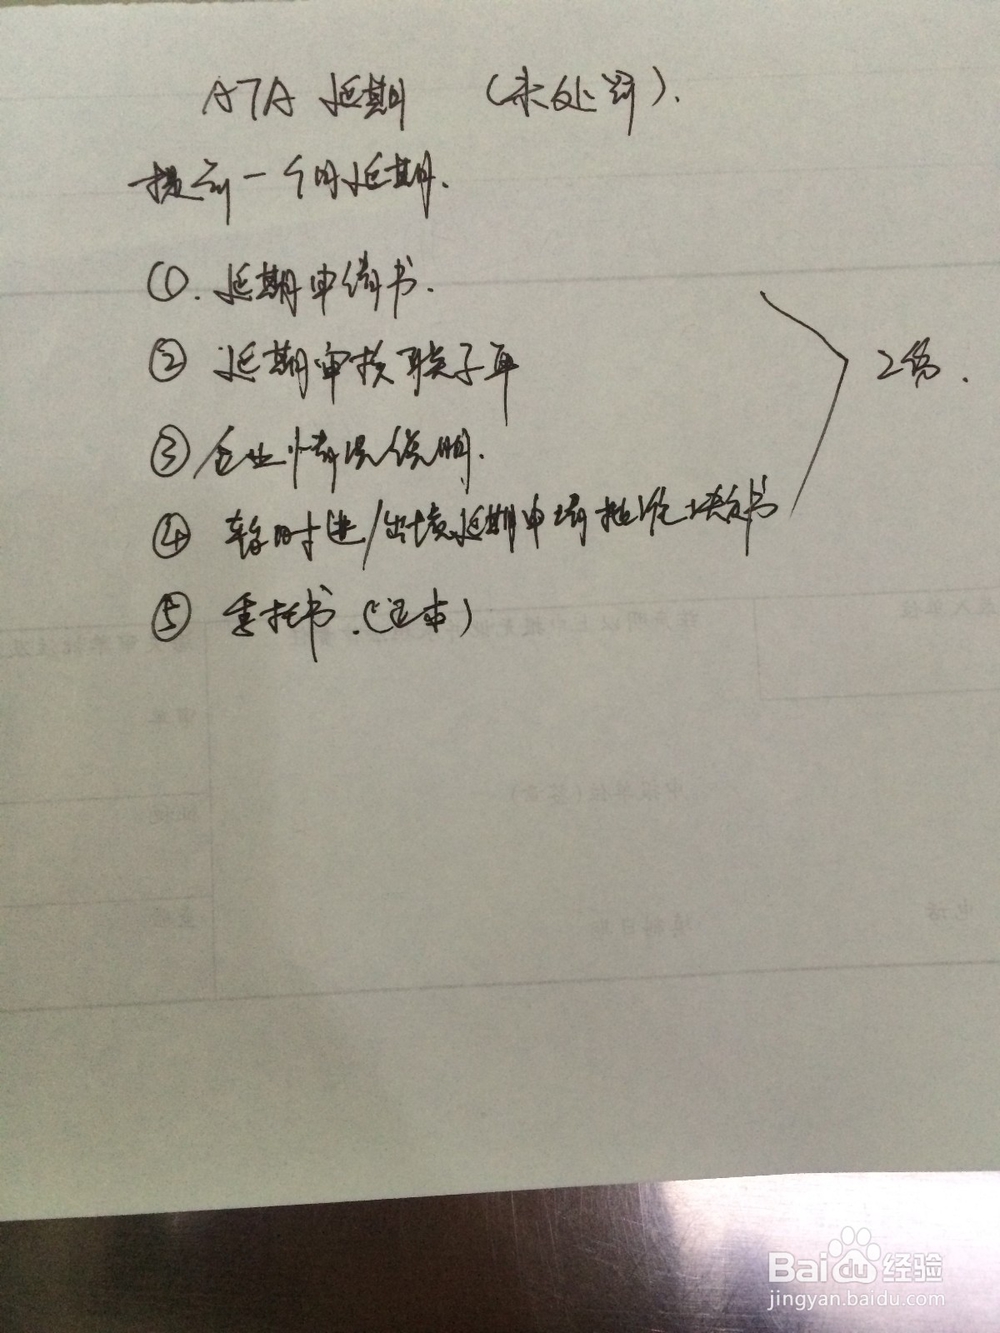 ATA 延期 (未处罚).
提前一个月延期.
①. 延期申请书.
② 延期审核联系单
③ 企业情况说明.
2份.
④ 暂时进/出境延期申请批准决定书
⑤ 委托书.(正本)
申报单位(签章)
填制日期
电话
Baidu经验
jingyan.baidu.com